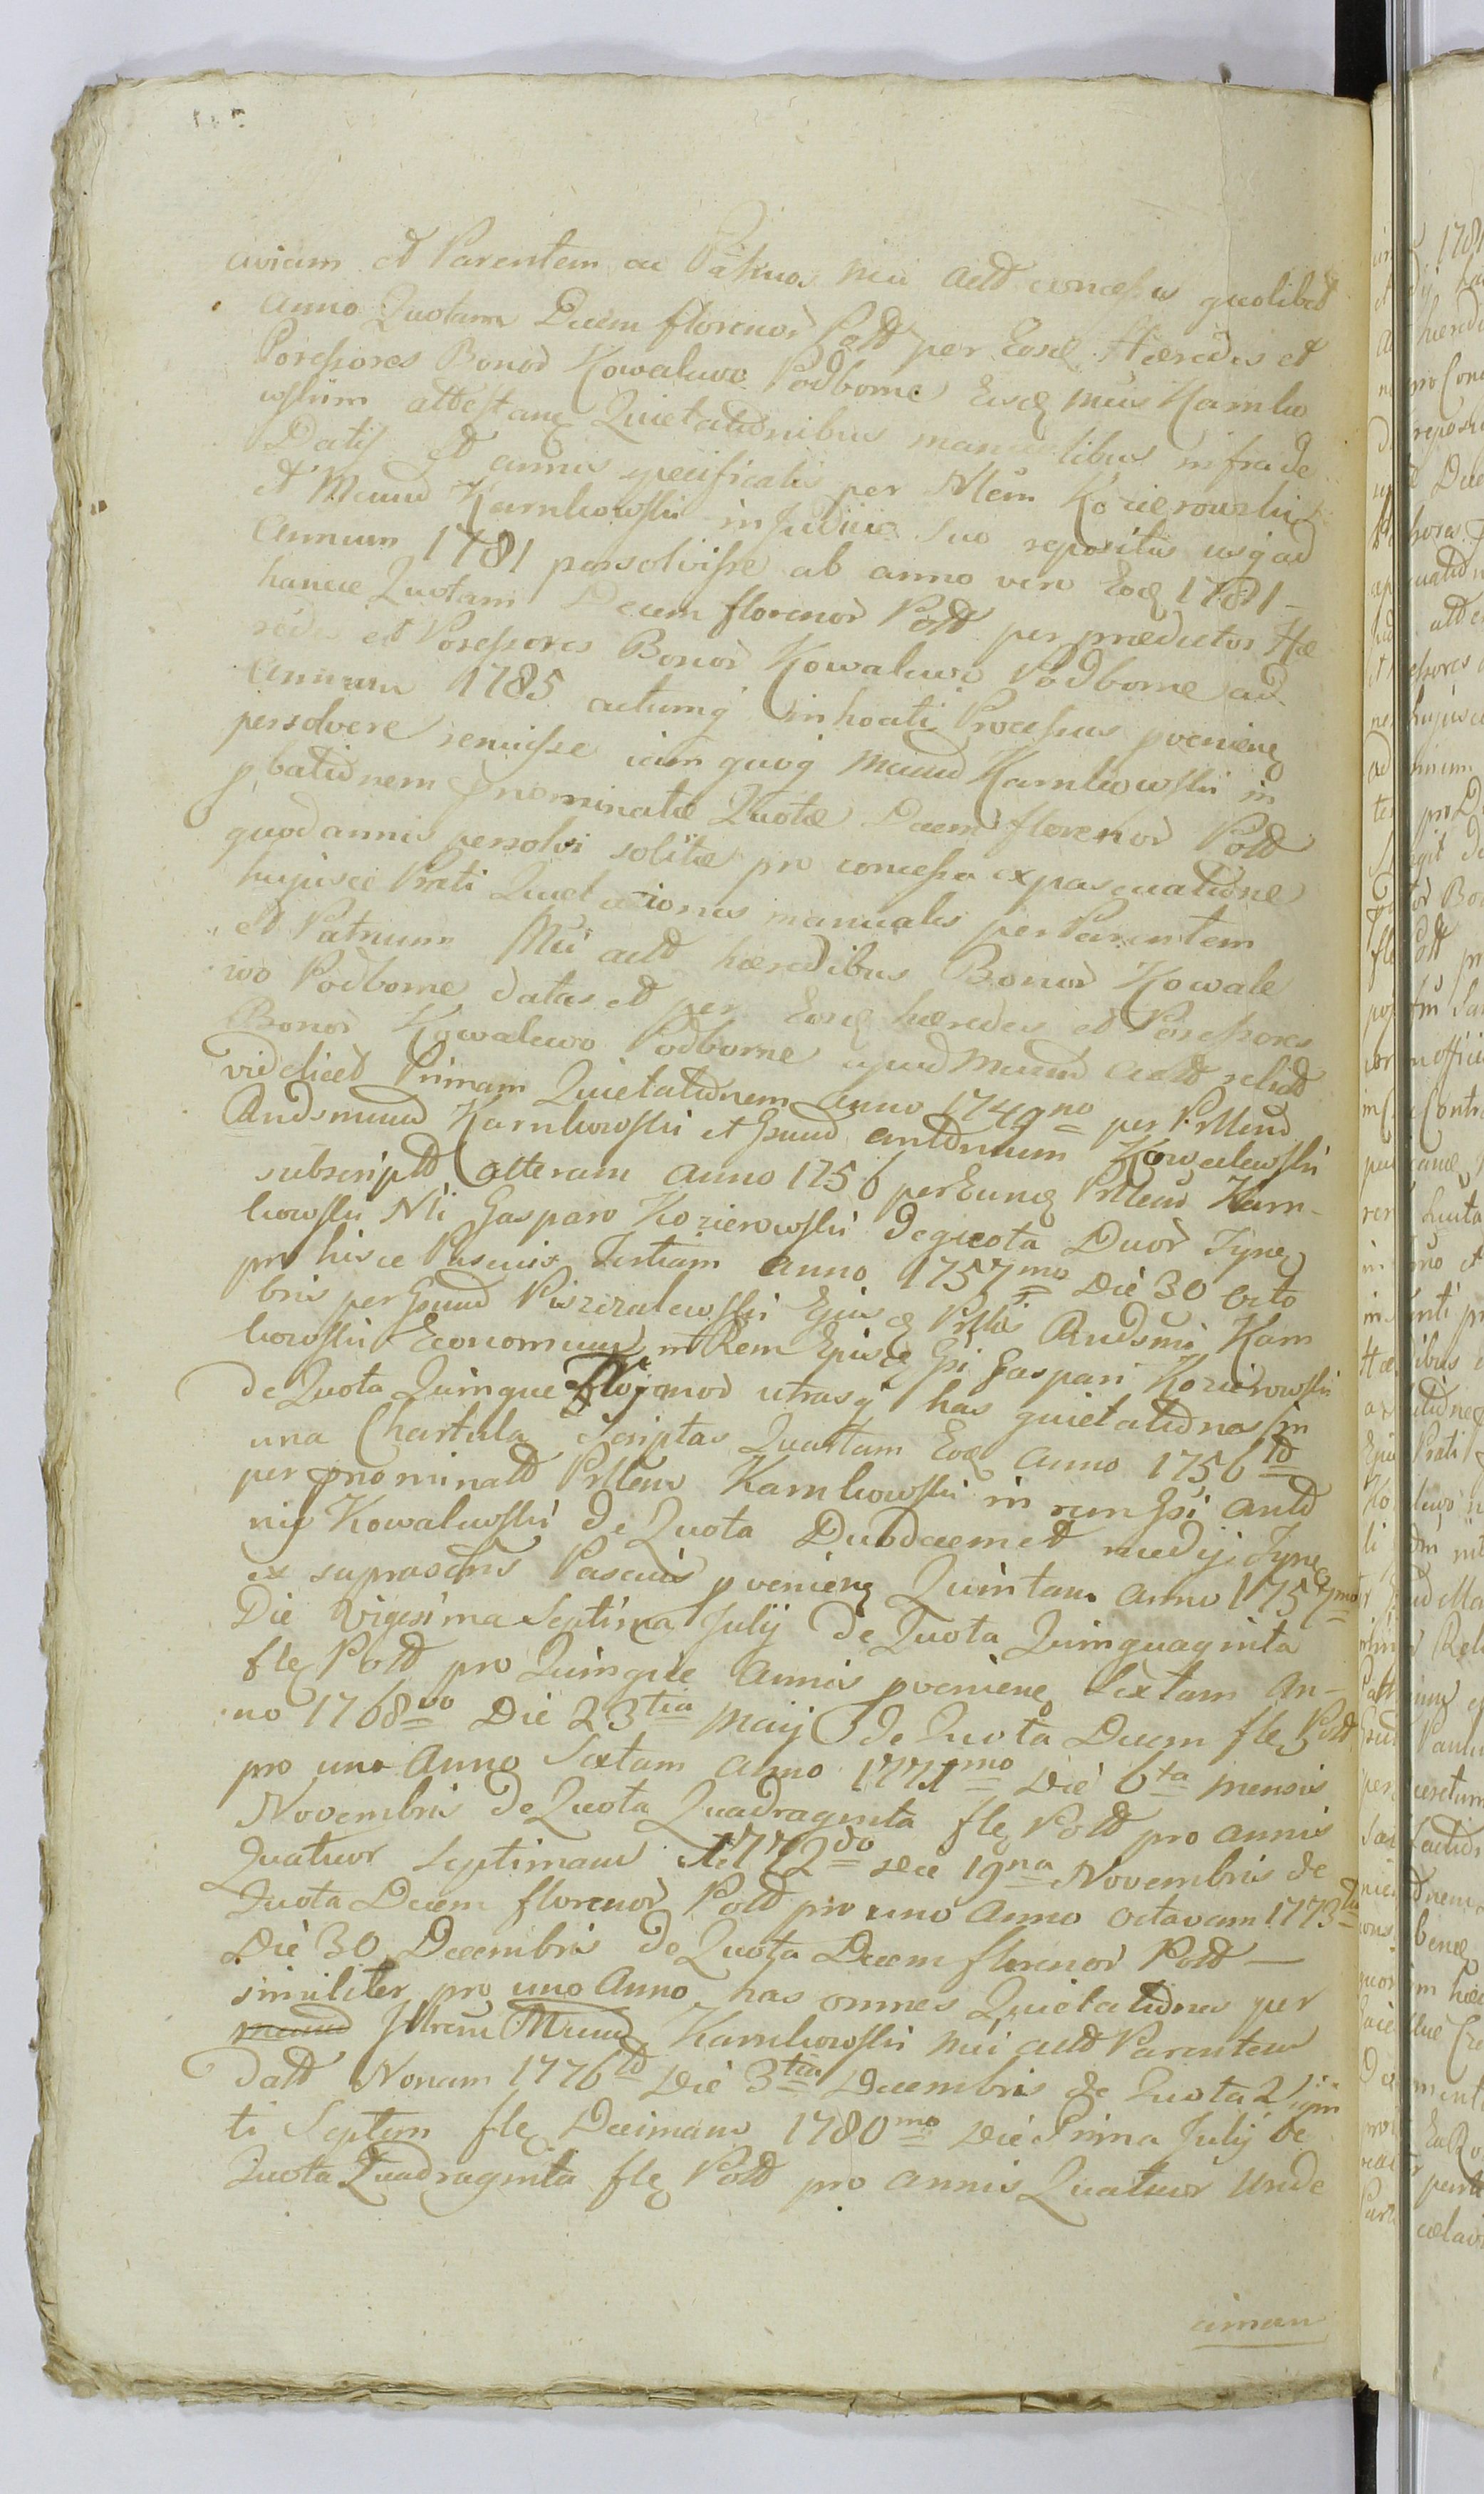 aviam et Parentem ac Patruos Mci actt concessis quolibet
anno Quotam Decem florenor Poltt per Eosq Hæredes et
Possessores Bonor Kowalewo Podborne Eisq Mcis Karnko
wskim attestanq Quietationibus manualibus infra de
Datis et annis specificatis per Mcum Kozierowski
et Mcum Karnkowski in Judicio suo repositis usq ad
Annum 1781 persolvisse ab anno vero Eoq 1781 –
hancce Quotam Decem florenor Poltt per prædictos Hæ
redes et Possessores Bonor Kowalewo Podborne ad
Annum 1785 actumq inhoati Processus pvenienq
persolvere renuisse iam quoq Mcum Karnkowski in
pbationem pnominatæ Quotæ Decem florenor Poltt
quod annis persolvi solitæ pro concessa expascuatione
hujusce Prati Quietationes manuales per Parentem
et Patruum Mci actt hæredibus Bonor Kowale
wo Podborne datas et per Eosq hæredes et Possessores
Bonor Kowalewo Podborne apud Mcum actt relictt
videlicet Primam Quietationem anno 1749no per P.Mcum
Rndsmum Karnkowski et Gsum Antonium Kowalewski
subscriptt alteram anno 1756 per Eumq P.Mcum Karn-
kowski Mci Gasparo Kozierowski de quota Duor Tynq
pro hisce Pascuis Tertiam anno 1757mo Die 30 Octo
bris per Gsum Ejusq P.Mci Rndsmi Karn
kowski Economum in Rem Ejusq Gsi Gaspari Kozierowski
de Quota Quinque florenor utrasq has quietationes in
una Chartula Scriptas Quartam Eoq anno 1756to
per pnominatt P.Mcum Karnkowski in rem Gsi Anto
nij Kowalewski de Quota Duodecem et medij Tynq
ex suprascris Pascuis pvenienq Quintam anno 1757mo
Die vigesima Septima Julij de Quota Quinquaginta
flq Poltt pro Quinque annis pvenienq Sextam An-
no 1768vo Die 23tia Maij de Quota Decem flq Poltt
pro uno Anno Sextam Anno 1771mo Die 6ta mensis
Novembris de Quota Quadraginta flq Poltt pro annis
Quatuor Septimam 1772do Die 19na Novembris de
Quota Decem florenor Poltt pro uno Anno Octavam 1773tio
Die 30 Decembris de Quota Decem florenor Poltt –
similiter pro uno Anno has omnes Quietationes per
Mcum Karnkowski Mci actt Parentem
Datt Nonam 1776to Die 3tia Decembris de Quota Vigin
ti Septem flq Decimam 1780mo Die Prima Julij de
Quota Quadraginta flq Poltt pro annis Quatuor Unde
ciman